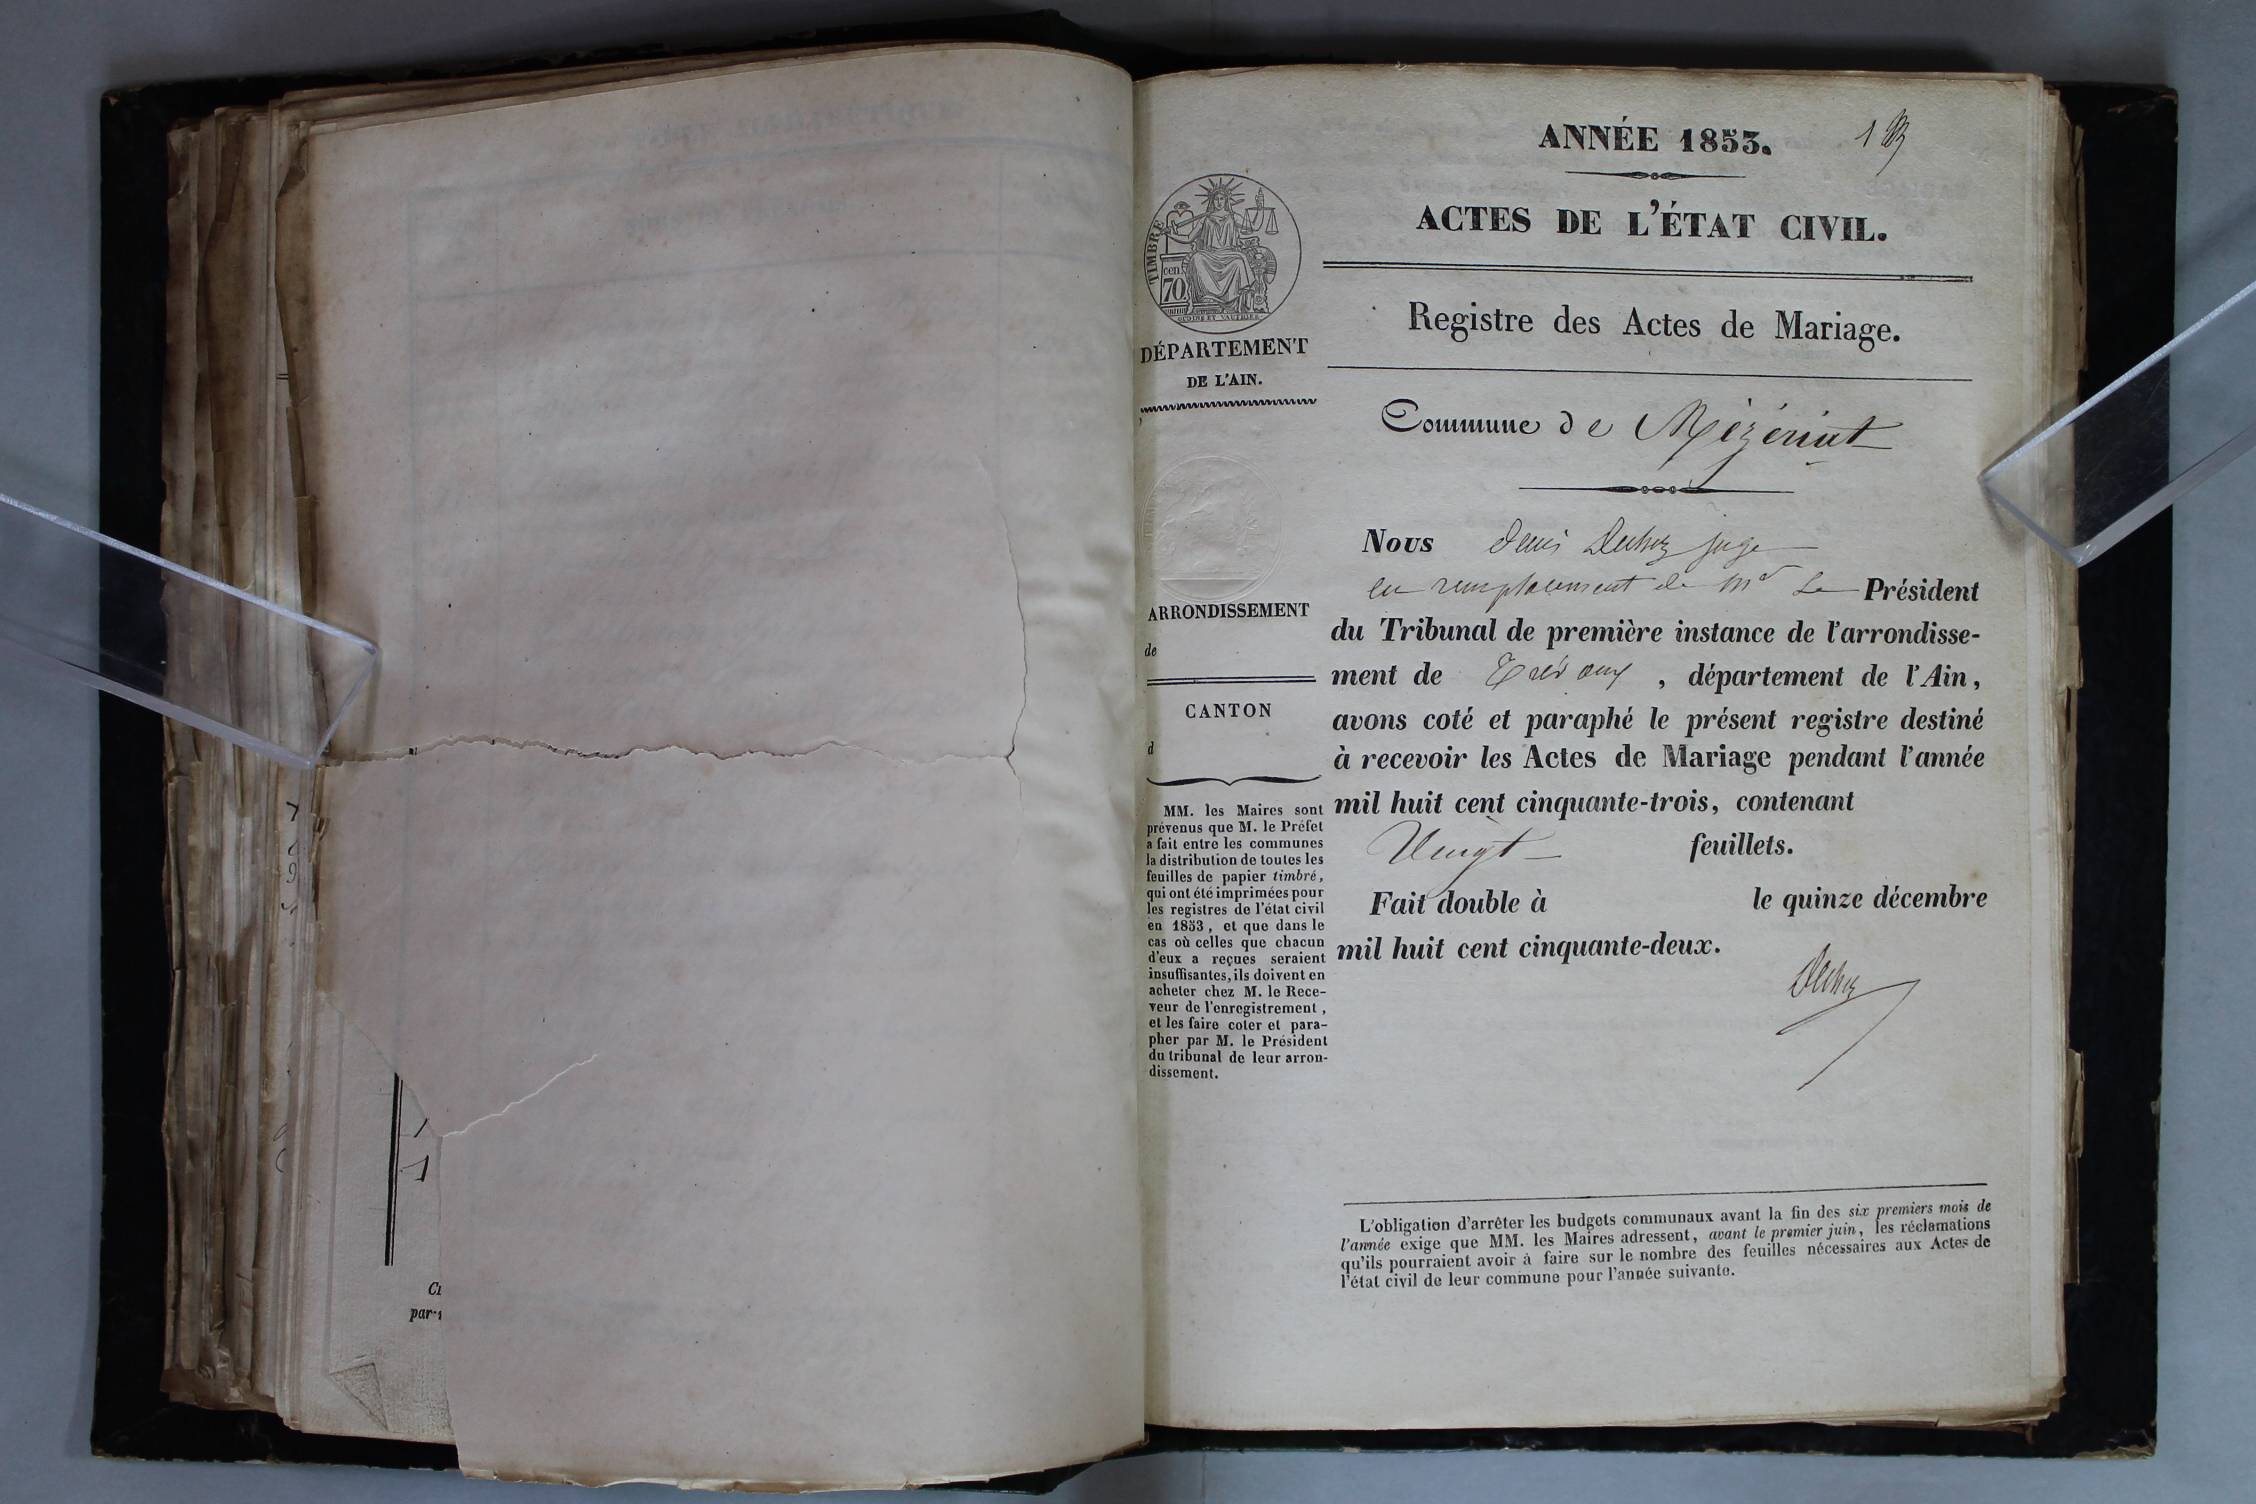 ANNÉE 1853.
1
ACTES DE L'ÉTAT CIVIL.
TIMBRE
cen
70.
OUDINÉ ET VAUTHIER
Registre des Actes de Mariage.
DÉPARTEMENT
DE L'AIN.
Commune de Mézériat
ARRONDISSEMENT
de
CANTON
d
MM. les Maires sont
prévenus que M. le Préfet
a fait entre les communes
la distribution de toutes les
feuilles de papier timbré,
qui ont été imprimées pour
les registres de l'état civil
en 1853, et que dans le
cas où celles que chacun
d'eux a reçues seraient
insuffisantes, ils doivent en
acheter chez M. le Rece-
veur de l'enregistrement,
et les faire coter et para-
pher par M. le Président
du tribunal de leur arron-
dissement.
Nous Denis juge
en remplacement de Mr Le Président
du Tribunal de première instance de l'arrondisse-
ment de Trévoux, département de l'Ain,
avons coté et paraphé le présent registre destiné
à recevoir les Actes de Mariage pendant l'année
mil huit cent cinquante-trois, contenant
Vingt feuillets.
Fait double à le quinze décembre
mil huit cent cinquante-deux.
L'obligation d'arrêter les budgets communaux avant la fin des six premiers mois de
l'année exige que MM. les Maires adressent, avant le premier juin, les réclamations
qu'ils pourraient avoir à faire sur le nombre des feuilles nécessaires aux Actes de
l'état civil de leur commune pour l'année suivante.